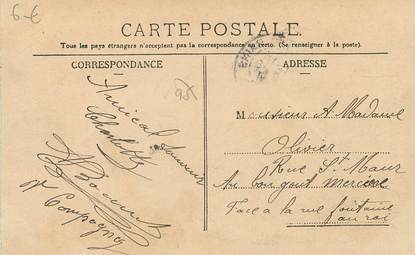 6-€
CARTE POSTALE.
Tous les pays étrangers n'acceptent pas la correspondance au recto. (Se renseigner à la poste).
CORRESPONDANCE
ADRESSE
95
Amical Souvenir
Monsieur & Madame
Olivier
Rue St Maur
Au bon gout mercerie
Face a la rue fontaine
au roi